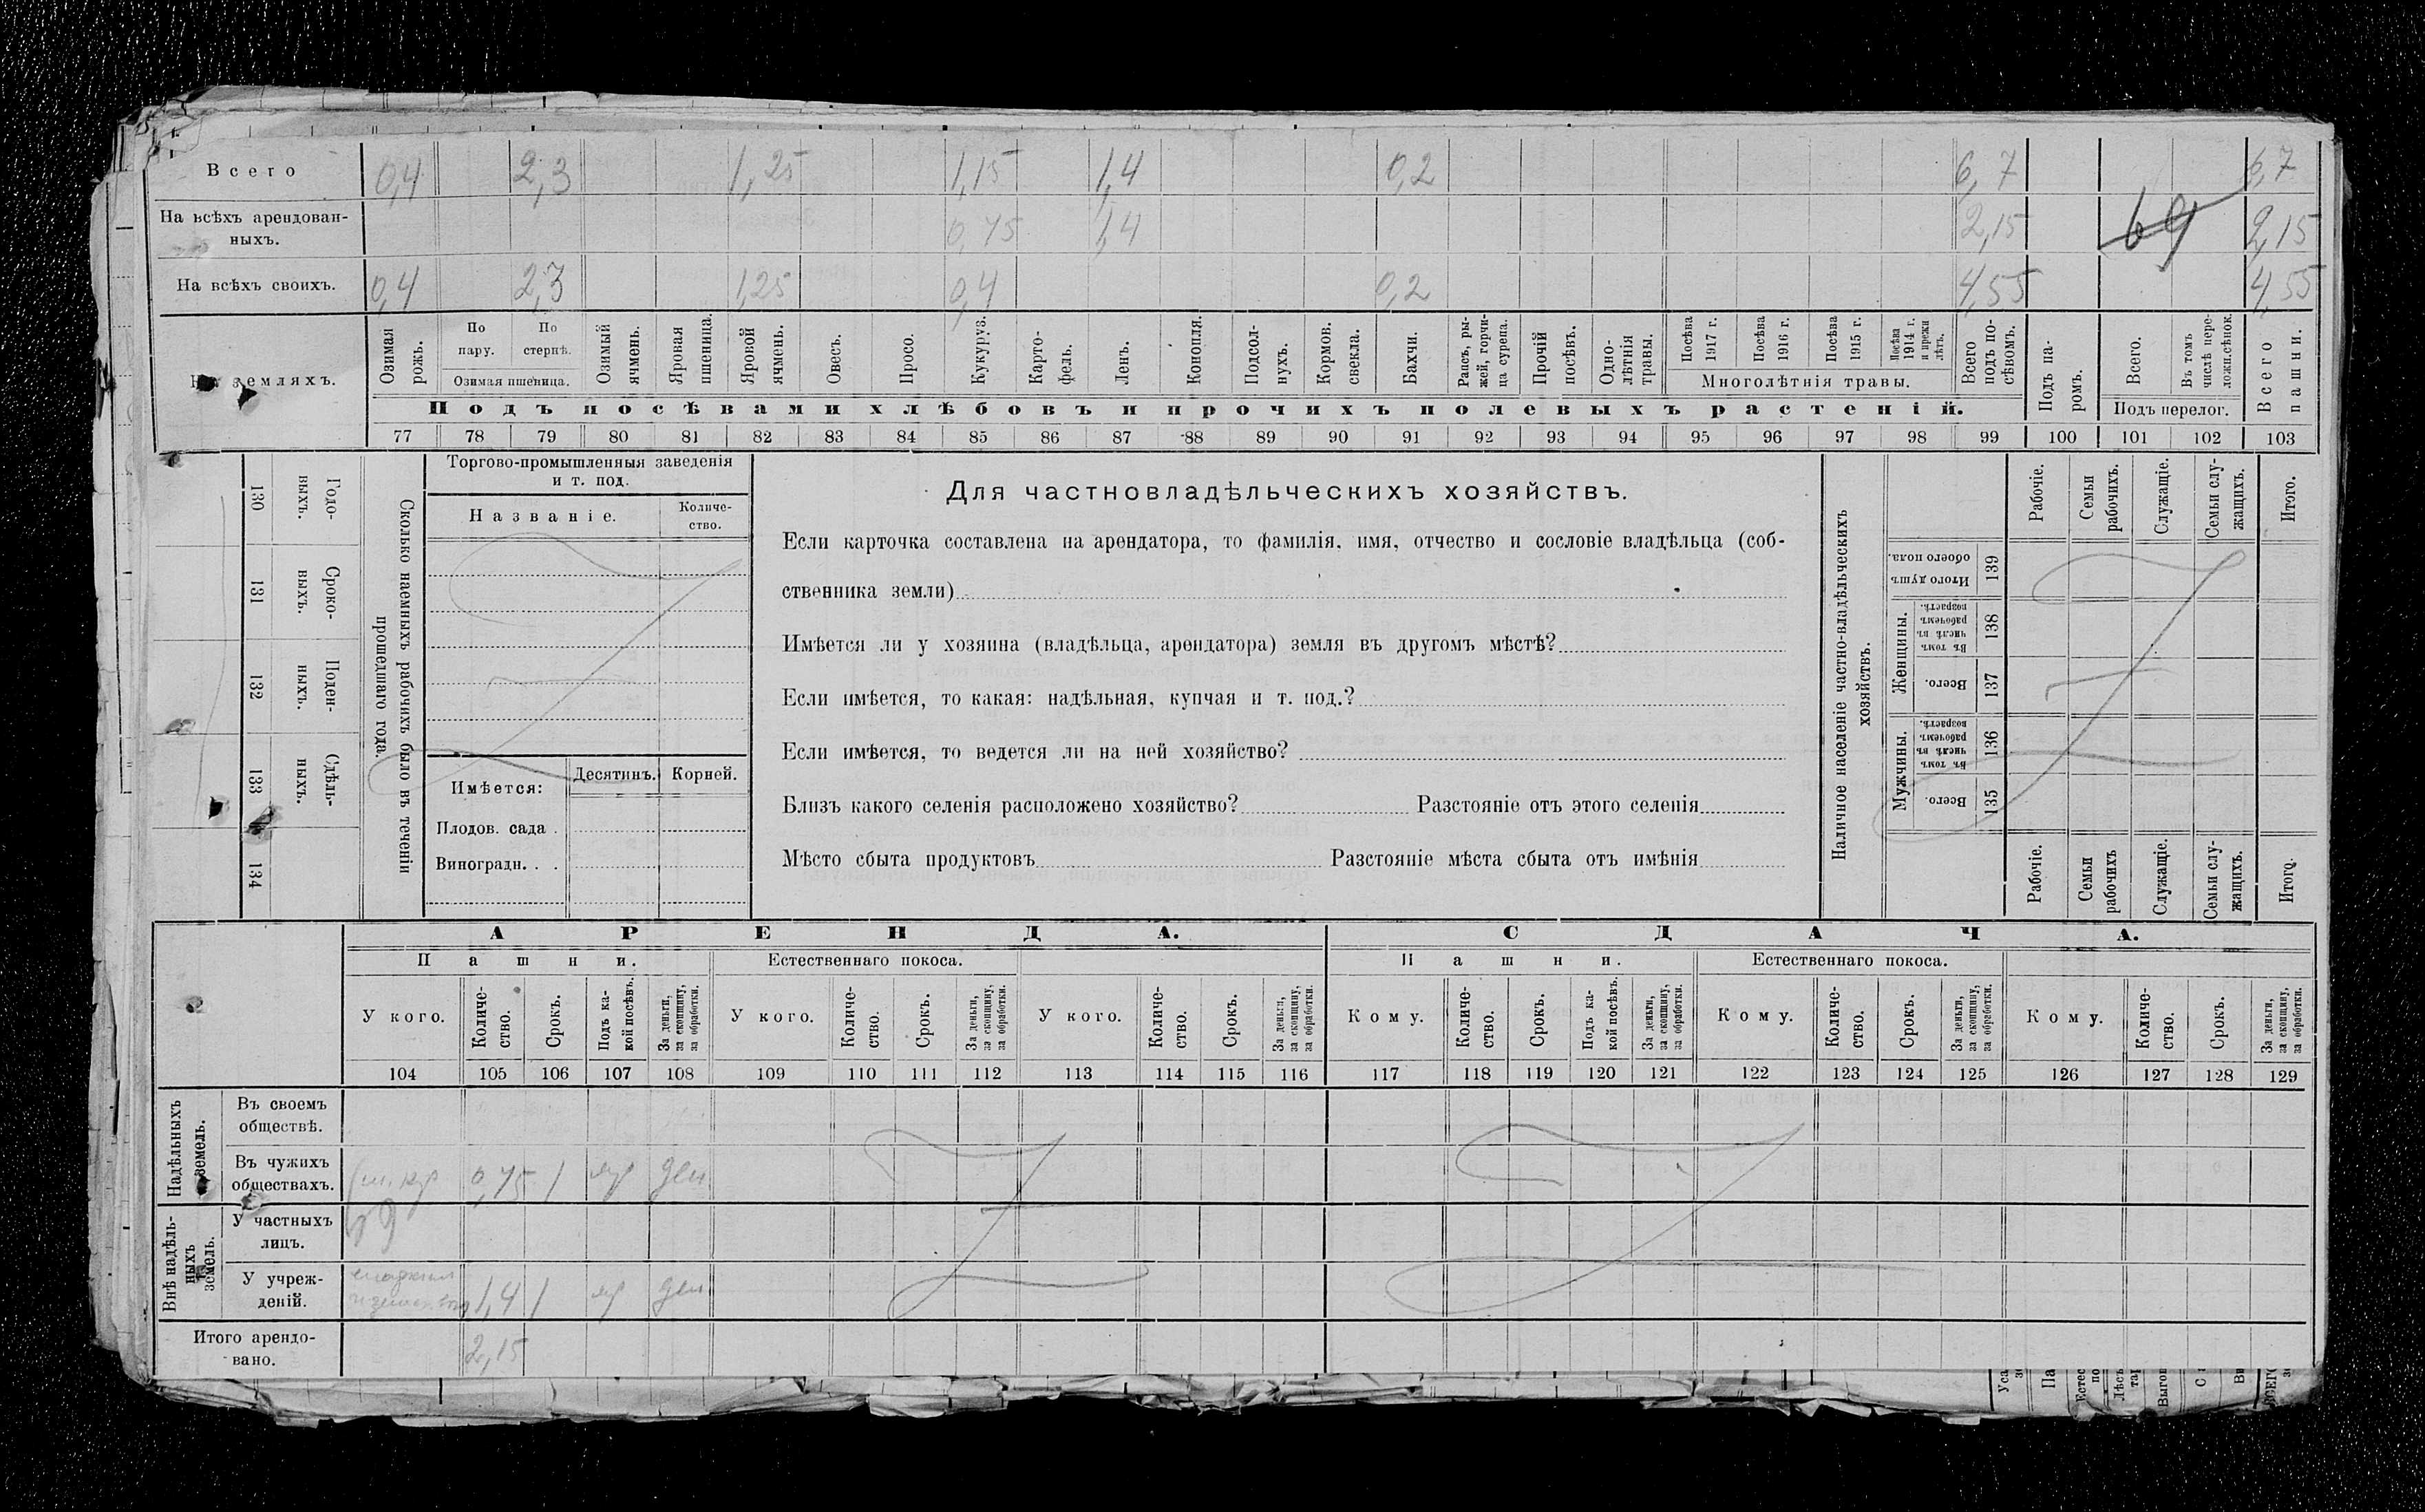 Всего 0,4 2,3 1,25 1,15 1,4 0,2 6,7 6,7
На всѣхъ арендован-
ныхъ. 0,75 1,4 2,15 69 2,15
На всѣхъ своихъ. 0,4 2,3 1,25 0,4 0,2 4,55 4,55
земляхъ.
Озимая рожь.
По пару.
По стернѣ.
Озимая пшеница.
Озимый ячмень.
Яровая пшеница.
Яровой ячмень.
Овесъ.
Просо.
Кукуруз.
Карто-
фель.
Ленъ.
Конопля.
Подсол-
нухъ.
Кормов. свекла.
Бахчи.
Рапсъ, ры-
жей, горчи-
ца сурепа.
Прочій посѣвъ.
Одно-
лѣтнія травы.
Посѣва 1917 г.
Посѣва 1916 г.
Посѣва 1915 г.
Посѣва 1914 г. и прежн лѣтъ.
Многолѣтнія травы.
Всего подъ по-
сѣвомъ.
Подъ па-
ромъ.
Всего.
Въ томъ числѣ пере-
ложн.сѣнок.
Подъ перелог.
Всего пашни.
Подъ посѣвами хлѣбовъ и прочихъ полевыхъ растеній.
77 78 79 80 81 82 83 84 85 86 87 88 89 90 91 92 93 94 95 96 97 98 99 100 101 102 103
Годо-
выхъ. 130
Сроко-
выхъ. 131
Поден-
ныхъ. 132
Сдѣль-
ныхъ. 133
134
Сколько наемныхъ рабочихъ было въ теченіи
прошедшаго года.
Торгово-промышленныя заведенія
и т. под.
Названіе.
Количе-
ство.
Имѣется: Десятинъ. Корней.
Плодов. сада .
Виноградн. . .
Для частновладѣльческихъ хозяйствъ.
Если карточка составлена на арендатора, то фамилія, имя, отчество и сословіе владѣльца (соб-
ственника земли)
Имѣется ли у хозяина (владѣльца, арендатора) земля въ другомъ мѣстѣ?
Если имѣется, то какая: надѣльная, купчая и т. под.?
Если имѣется, то ведется ли на ней хозяйство?
Близъ какого селенія расположено хозяйство? Разстояніе отъ этого селенія
Мѣсто сбыта продуктовъ Разстояніе мѣста сбыта отъ имѣнія
Наличное населеніе частно-владѣльческихъ
хозяйствъ.
Рабочіе.
Семьи рабочихъ.
Служащіе.
Семьи слу-
жащихъ.
Итого.
Итого душъ обоего пола. 139
Женщины.
Въ томъ числѣ въ рабочемъ возрастѣ. 138
Всего. 137
Мужчины.
Въ томъ числѣ въ рабочемъ возрастѣ. 136
Всего. 135
Рабочіе.
Семьи рабочихъ
Служащіе.
Семьи слу-
жащихъ.
Итого.
АРЕНДА. СДАЧА.
Пашни. Естественнаго покоса. Пашни. Естественнаго покоса.
У кого.
Количе-
ство.
Срокъ.
Подъ ка-
кой посѣвъ.
За деньги, за скопщину, за обработки.
У кого.
Количе-
ство.
Срокъ.
За деньги, за скопщину, за обработки.
У кого.
Количе-
ство.
Срокъ.
За деньги, за скопщину, за обработки.
Кому.
Количе-
ство.
Срокъ.
Подъ ка-
кой посѣвъ.
За деньги, за скопщину, за обработки.
Кому.
Количе-
ство.
Срокъ.
За деньги, за скопщину, за обработки.
Кому.
Количе-
ство.
Срокъ.
За деньги, за скопщину, за обработки.
104 105 106 107 108 109 110 111 112 113 114 115 116 117 118 119 120 121 122 123 124 125 126 127 128 129
Надѣльныхъ земель.
Въ своемъ
обществѣ.
Въ чужихъ
обществахъ. 0,75 1 яр ден
69
Внѣ надѣль-
ныхъ земель.
У частныхъ
лицъ.
У учреж-
деній. 1,4 1 яр ден
Итого арендо-
вано. 2,15